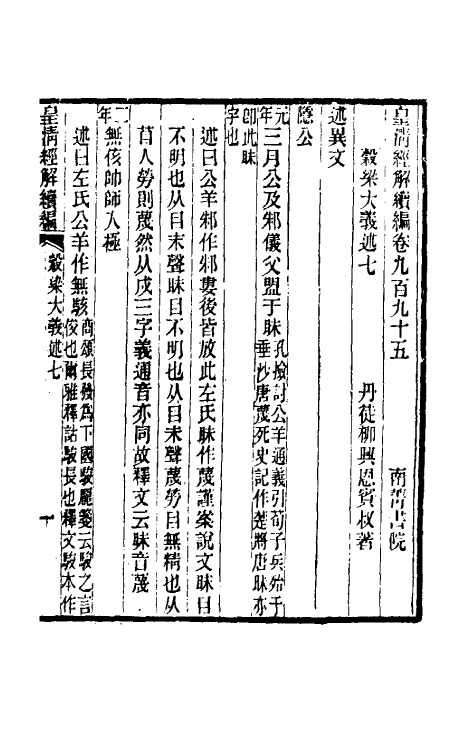 皇清經解續編卷九百九十五　南菁書院
穀梁大義述七　丹徒柳興恩賓叔著
述異文
隱公
元年三月公及邾儀父盟于眛孔檢討公羊通義引荀子兵殆于垂沙唐蔑死史記作楚將唐眛亦
卽此眛字也
述曰公羊邾作邾婁後皆放此左氏眛作蔑謹案說文眛目
不明也从目末聲眛目不明也从目未聲蔑勞目無精也从
苜人勞則蔑然从戍三字義通音亦同故釋文云眛音蔑
二年無侅帥師入極
述曰左氏公羊作無駭商頌長發為下國駿厖箋云駿之言俊也爾雅釋詁駿長也釋文駿本作
皇清經解續編　穀梁大義述七